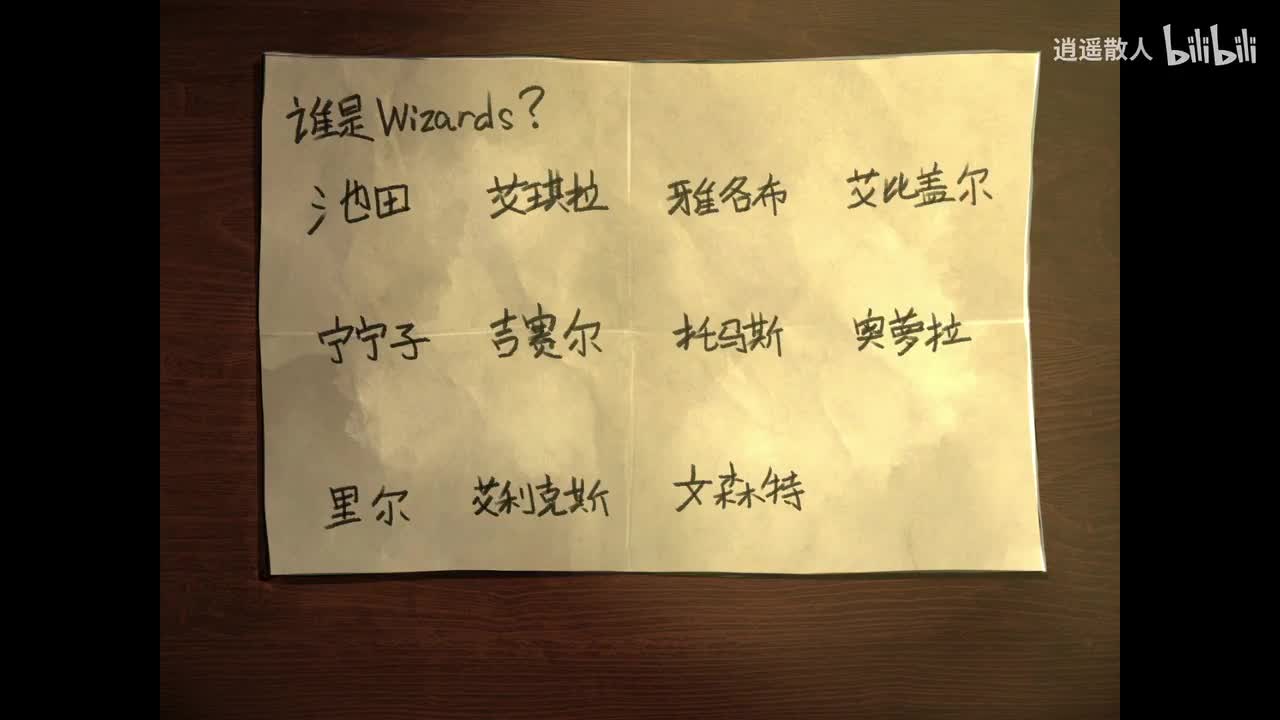 逍遥散人 bilibili
谁是Wizards?
池田 艾琪拉 雅各布 艾比盖尔
宁宁子 吉赛尔 托马斯 奥萝拉
里尔 艾利克斯 文森特